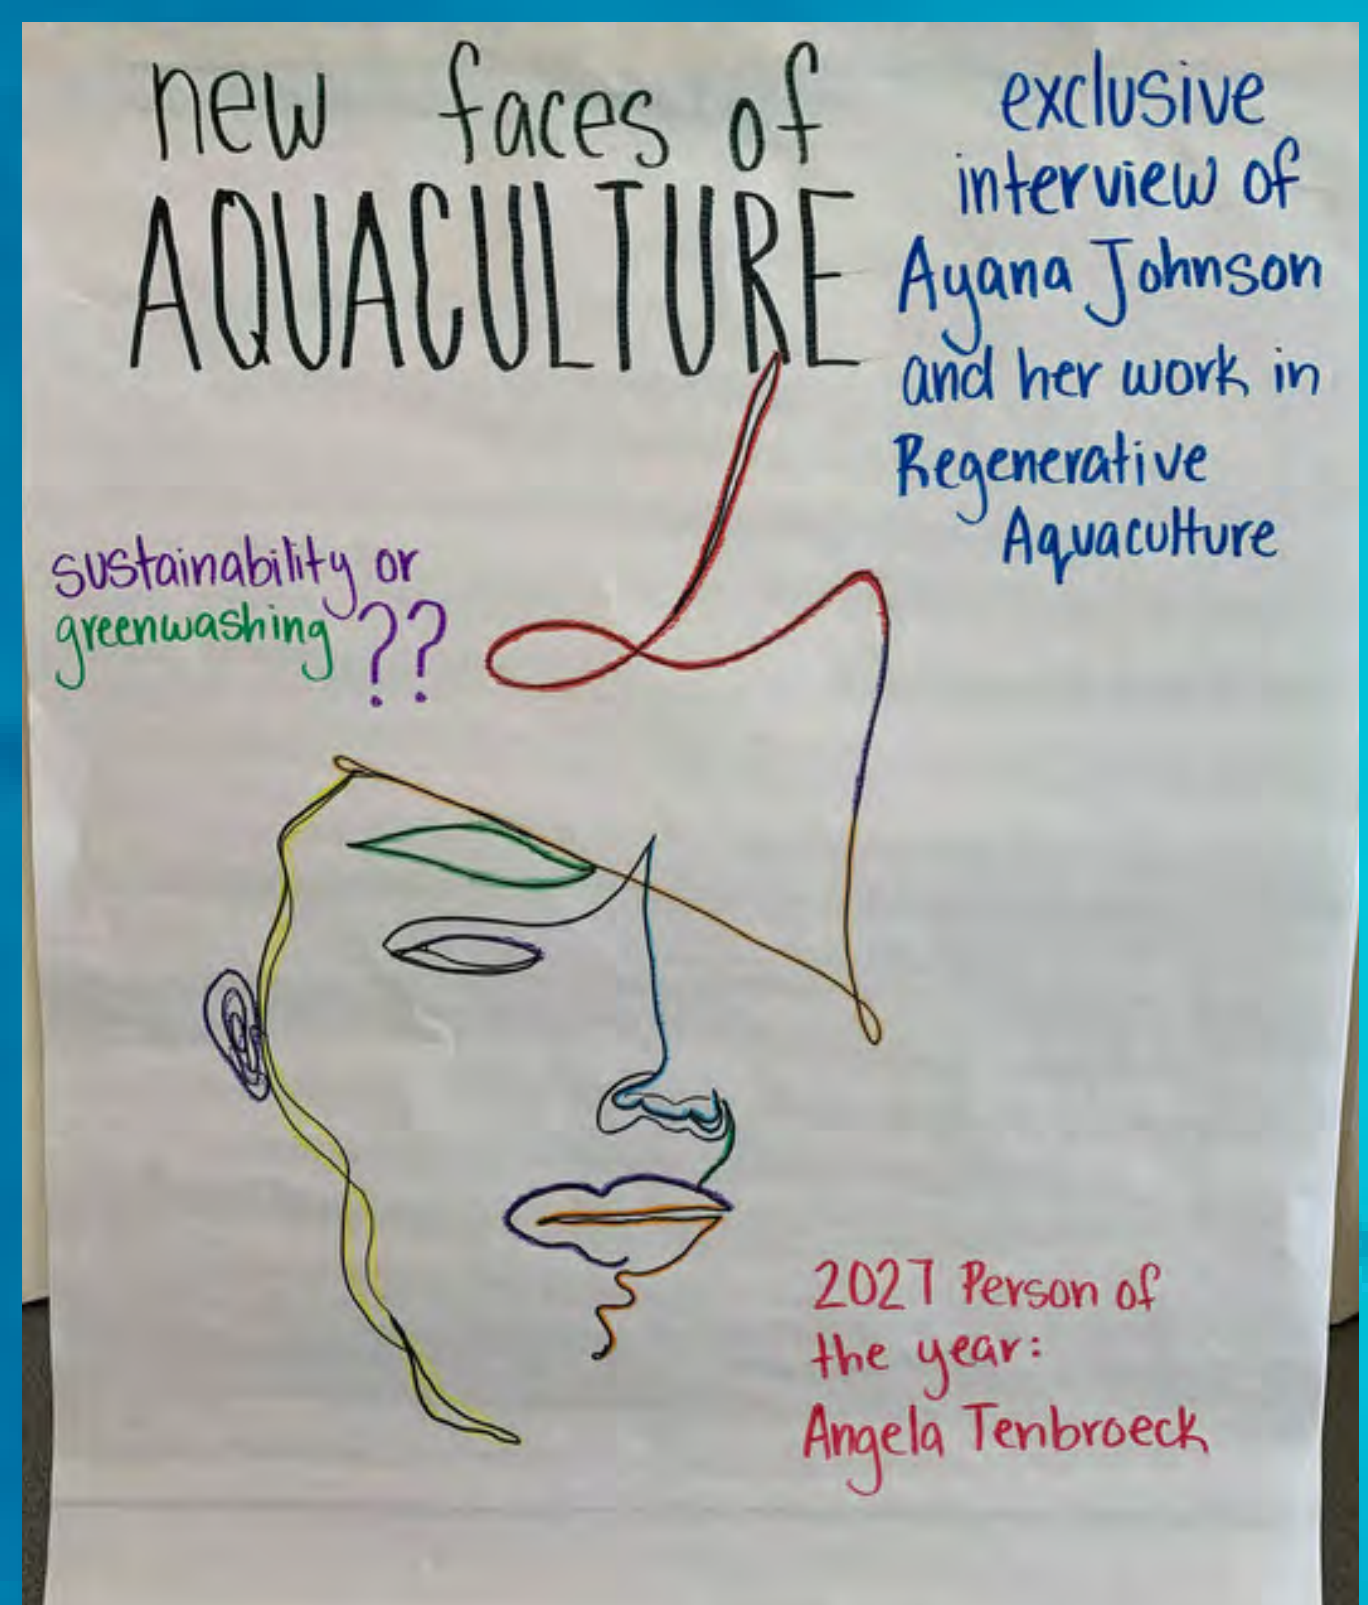 new faces of
AQUACULTURE
exclusive
interview of
Ayana Johnson
and her work in
Regenerative
Aquaculture
sustainability or
greenwashing ??
2027 Person of
the year:
Angela Tenbroeck